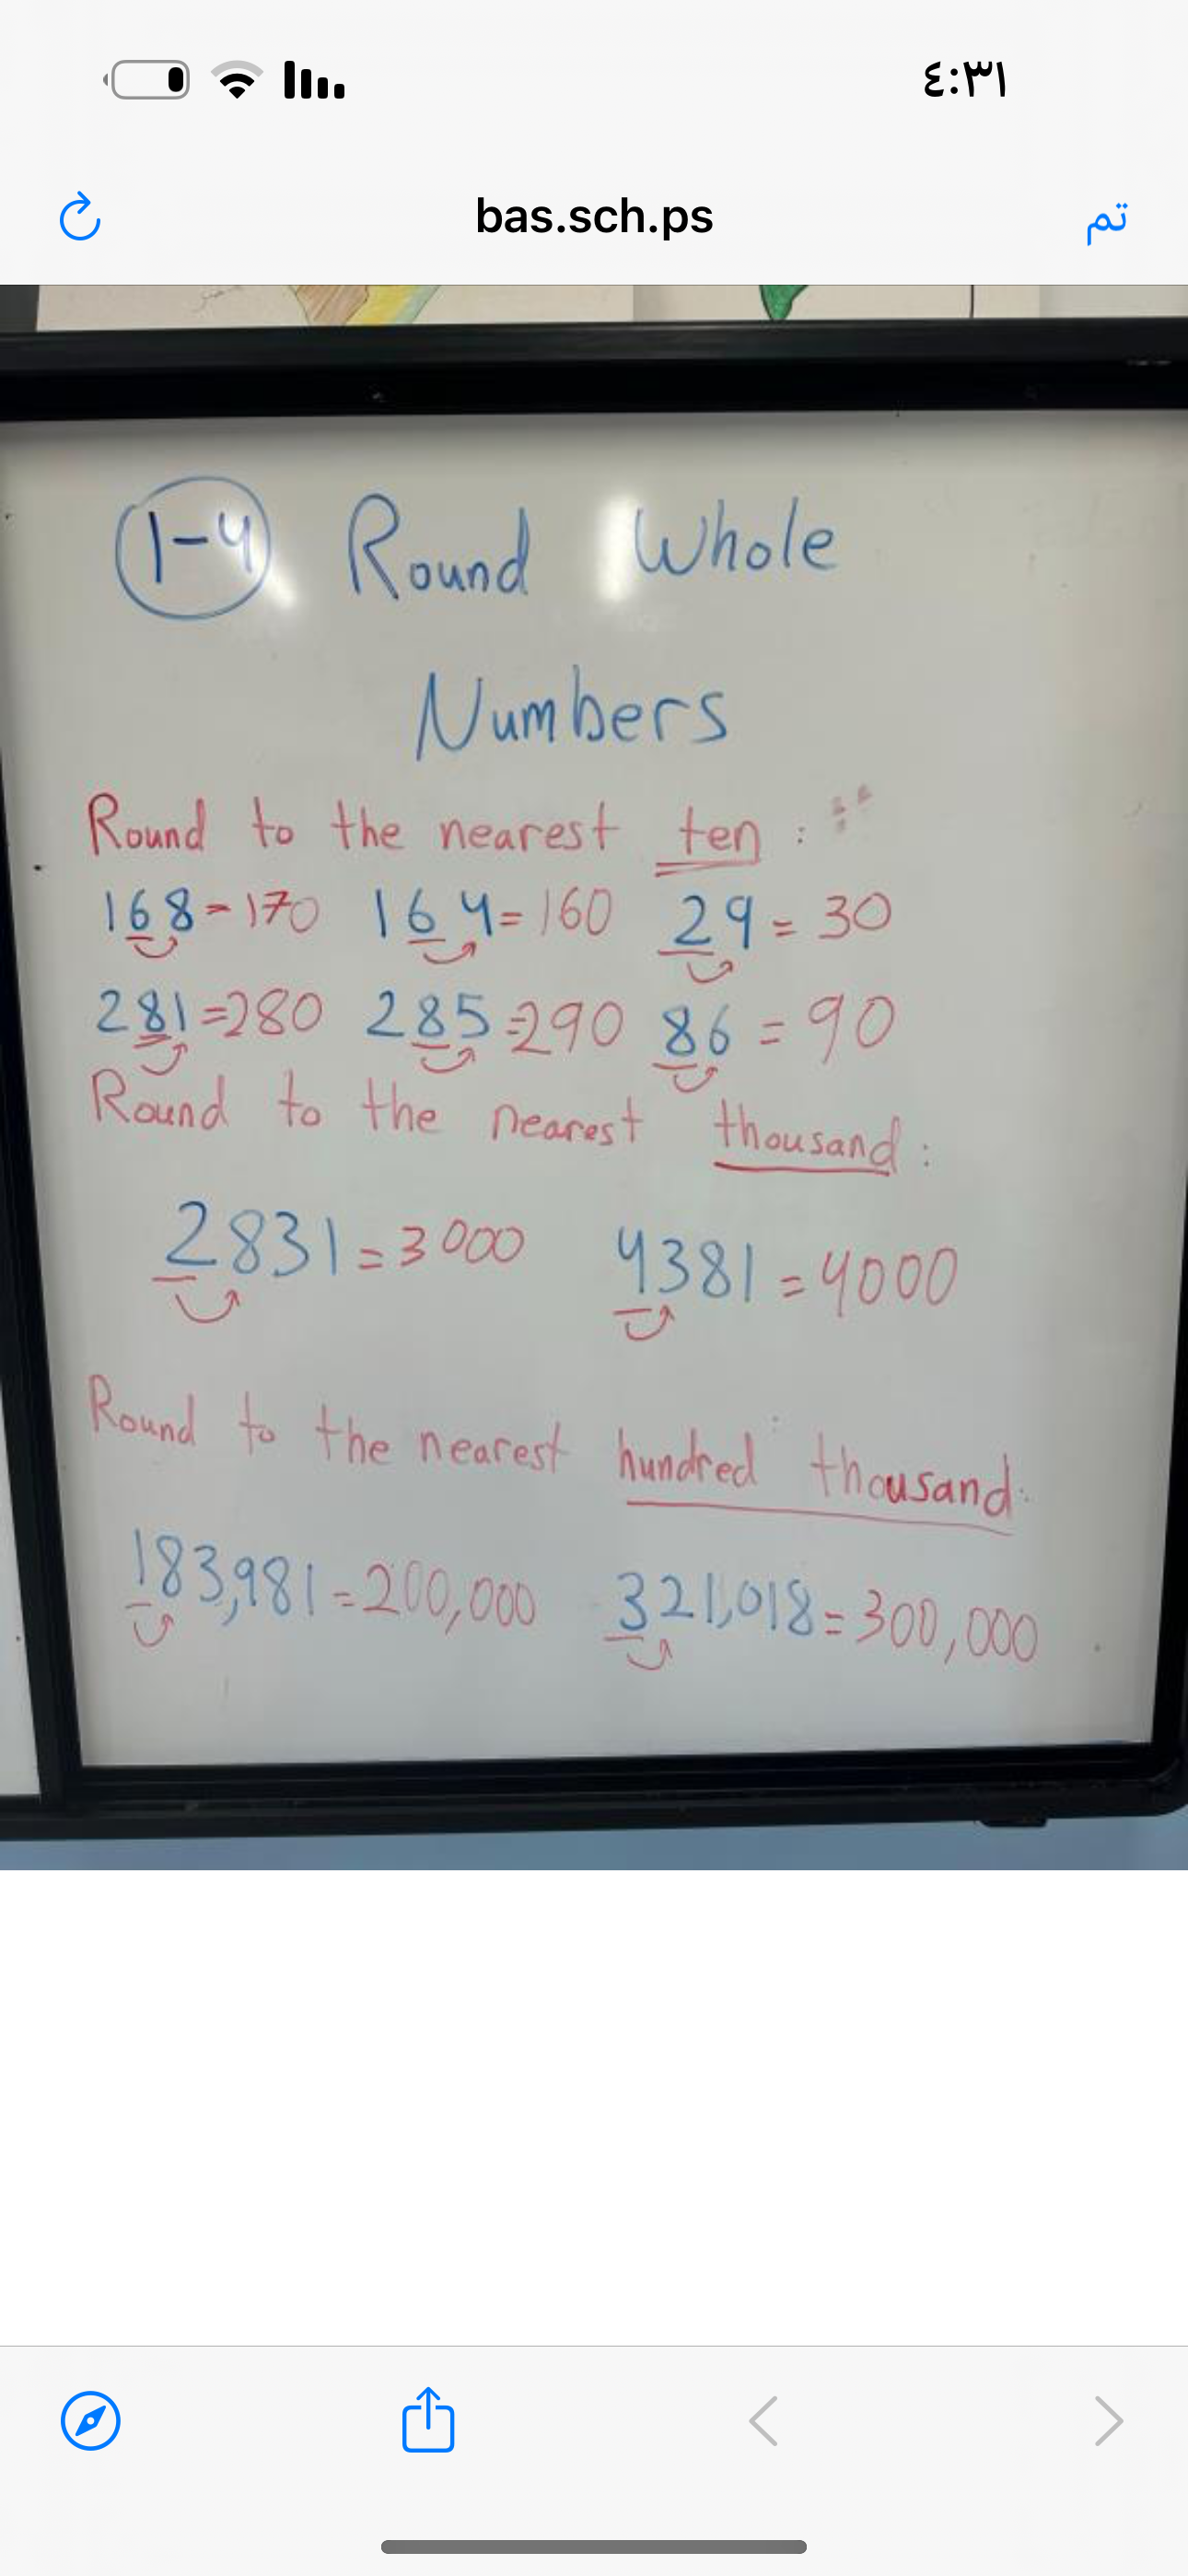 ٤:٣١
bas.sch.ps
تم
1-4 Round Whole
Numbers
Round to the nearest ten :
168=170 164=160 29=30
281=280 285=290 86=90
Round to the nearest thousand:
2831=3000 4381=4000
Round to the nearest hundred thousand:
183,981=200,000 321,018=300,000